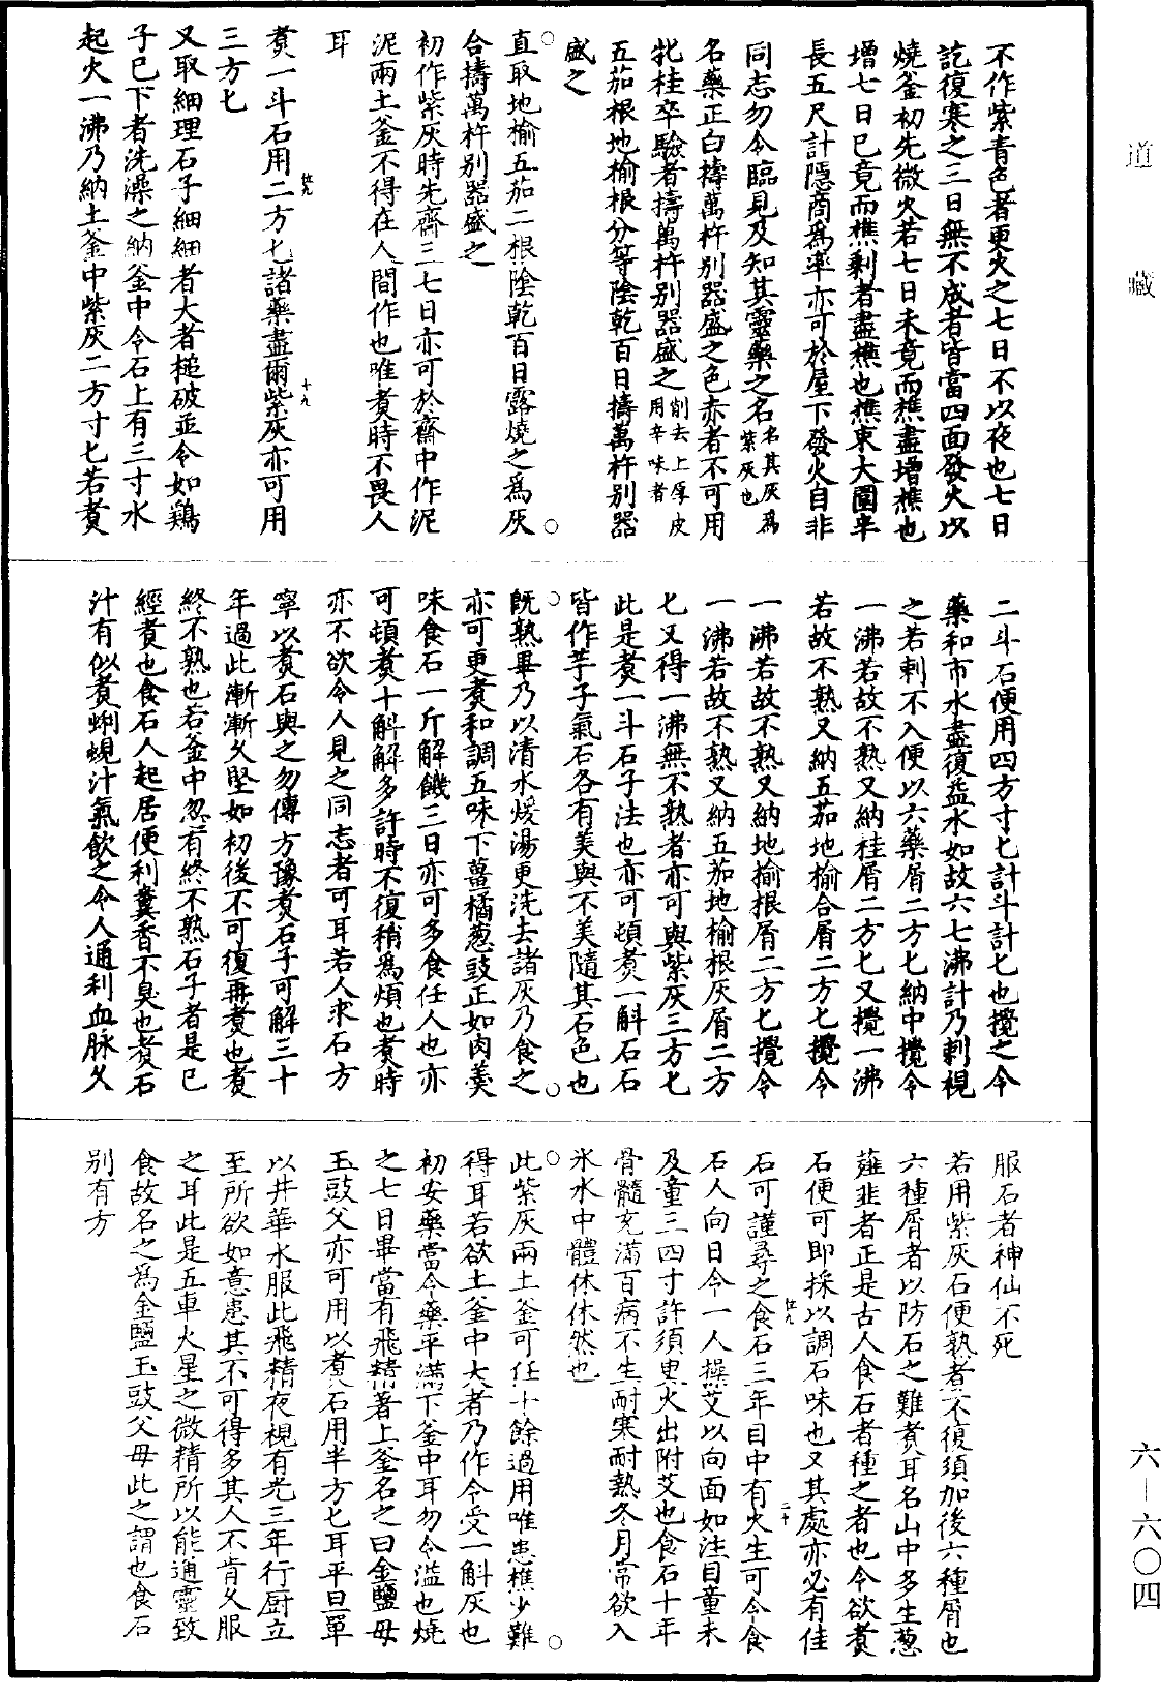 道藏
六—六〇四
不作紫青色者更火之七日不以夜也七日
訖復寒之三日無不成者皆當四面發火以
燒釜初先微火若七日未竟而樵盡增樵也
增七日已竟而樵剩者盡樵也樵東大圍半
長五尺計隱商爲率亦可於屋下發火自非
同志勿令臨見及知其靈藥之名名其灰爲紫灰也
名藥正白擣萬杵别器盛之色赤者不可用
牝桂卒驗者擣萬杵别器盛之削去上厚皮用辛味者
五茄根地榆根分等陰乾百日擣萬杵别器
盛之
直取地榆五茄二根陰乾百日露燒之爲灰
合擣萬杵别器盛之
初作紫灰時先齋三七日亦可於齋中作泥
泥兩土釜不得在人間作也唯煑時不畏人
耳
煑一斗石用二方七諸藥盡爾紫灰亦可用
三方七
又取細理石子細細者大者槌破並令如鷄
子已下者洗澡之納釜中令石上有三寸水
起火一沸乃納土釜中紫灰二方寸七若煑
二斗石便用四方寸七計斗計七也攪之令
藥和市水盡復益水如故六七沸計乃刺視
之若刺不入便以六藥屑二方七納中攪令
一沸若故不熟又納桂屑二方七又攪一沸
若故不熟又納五茄地榆合屑二方七攪令
一沸若故不熟又納地榆根屑二方七攪令
一沸若故不熟又納五茄地榆根灰屑二方
七又得一沸無不熟者亦可與紫灰三方七
此是煑一斗石子法也亦可頓煑一斛石石
皆作芋子氣石各有美與不美隨其石色也
旣熟畢乃以清水煖湯更洗去諸灰乃食之
亦可更煑和調五味下薑橘葱豉正如肉羹
味食石一斤解饑三日亦可多食任人也亦
可頓煑十斛解多許時不復稍爲煩也煑時
亦不欲令人見之同志者可耳若人求石方
寧以煑石與之勿傳方豫煑石子可解三十
年過此漸漸久堅如初後不可復再煑也煑
終不熟也若釜中忽有終不熟石子者是已
經煑也食石人起居便利糞香不臭也煑石
汁有似煑蜊蜆汁氣飲之令人通利血脉久
服石者神仙不死
若用紫灰石便熟者不復須加後六種屑也
六種屑者以防石之難煑耳名山中多生葱
薤韭者正是古人食石者種之者也今欲煑
石便可即採以調石味也又其處亦必有佳
石可謹尋之食石三年目中有火生可令食
石人向日令一人操艾以向面如注目童未
及童三四寸許須臾火出附艾也食石十年
骨髓充滿百病不生耐寒耐熱冬月常欲入
氷水中體休休然也
此紫灰兩土釜可任十餘過用唯患樵少難
得耳若欲土釜中大者乃作令受一斛灰也
初安藥當令藥平滿下釜中耳勿令溢也燒
之七日畢當有飛精著上釜名之曰金鹽母
玉豉父亦可用以煑石用半方七耳平旦單
以井華水服此飛精夜視有光三年行厨立
至所欲如意患其不可得多其人不肯久服
之耳此是五車火星之微精所以能通靈致
食故名之爲金鹽玉豉父母此之謂也食石
别有方